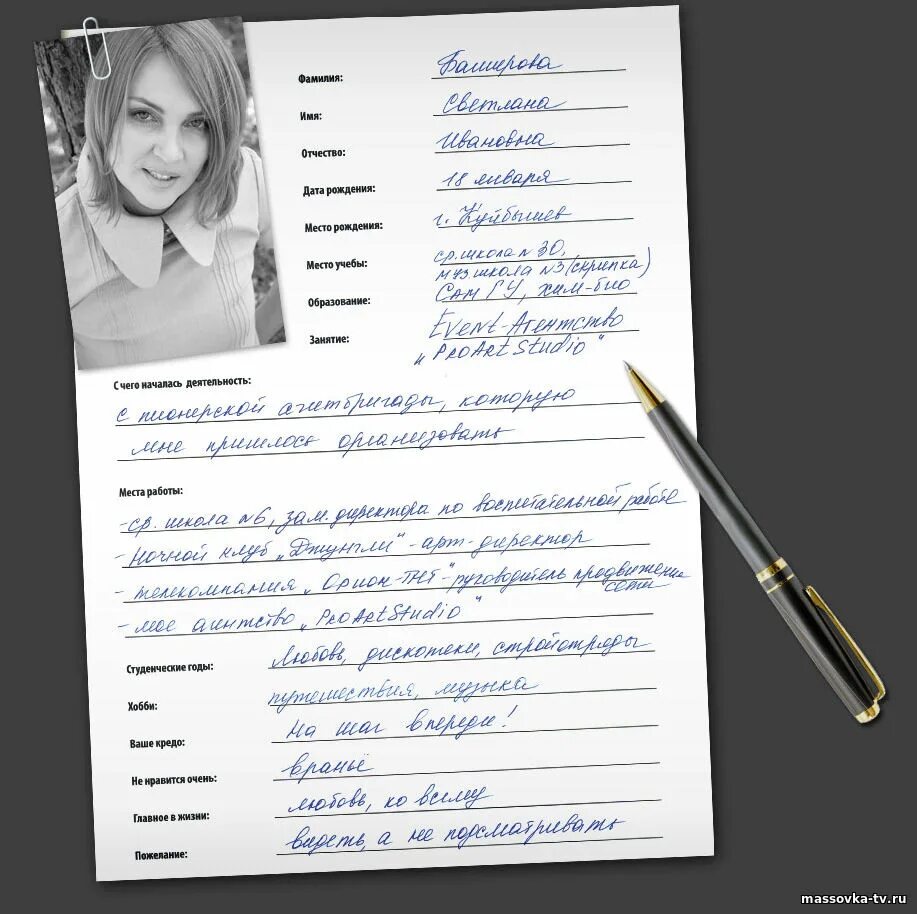 Фамилия: Баширова
Имя: Светлана
Отчество: Ивановна
Дата рождения: 18 января
Место рождения: г. Куйбышев
Место учебы: ср. школа № 30,
муз школа №3 (скрипка)
Образование: СамГУ, хим-био
Занятие: Event-Агентство
„ProArtStudio"
С чего началась деятельность:
с пионерской агитбригады, которую
мне пришлось организовать
Места работы:
- ср. школа №6, зам. директора по воспитательной работе
- Ночной клуб „Джунгли" - арт-директор
- телекомпания „Орион-ТНТ" - руководитель продвижение
сети
- мое агнтство „ProArtStudio"
Студенческие годы: Любовь, дискотеки, стройотряды
Хобби: путешествия, музыка
Ваше кредо: На шаг впереди!
Не нравится очень: враньё
Главное в жизни: любовь, ко всему
Пожелание: видеть, а не подсматривать
massovka-tv.ru